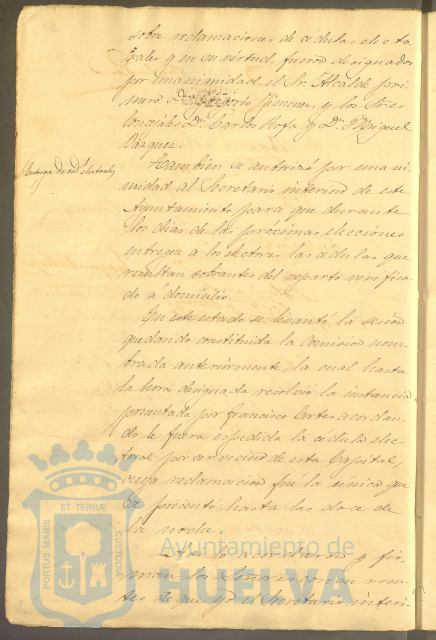 sobre reclamaciones de cedulas electo
rales y en su virtud, fueron designados
por unanimidad el Sr. Alcalde pri
mero Dn. Jimenez, y los Sres
Concejales Dn. Carlos Rofa y Dn. Miguel
Vazquez.
Entrega de ced electorales
Tambien se autorizó por una ni
midad al Secretario interino de este
Ayuntamiento para que durante
los dias de las procsimas elecciones
entregue a los electores las cédulas que
resultan sobrantes del reparto verifica
do á domicilio.
En este estado se levantó la sesion
quedando constituida la Comision nom
brada anteriormente, la cual hasta
la hora designada resolvió la instancia
presentada por Francisco Cortes acordan
do le fuera expedida la cedula elec
toral por ser vecino de esta Capital,
cuya reclamacion fue la unica que
se presentó hasta las doce de
la noche.
y fir
man los Señores
tes de que yo el Secretario interi
ET TERRÆ
PORTUS MARIS
CUSTODIA
Ayuntamiento de
HUELVA